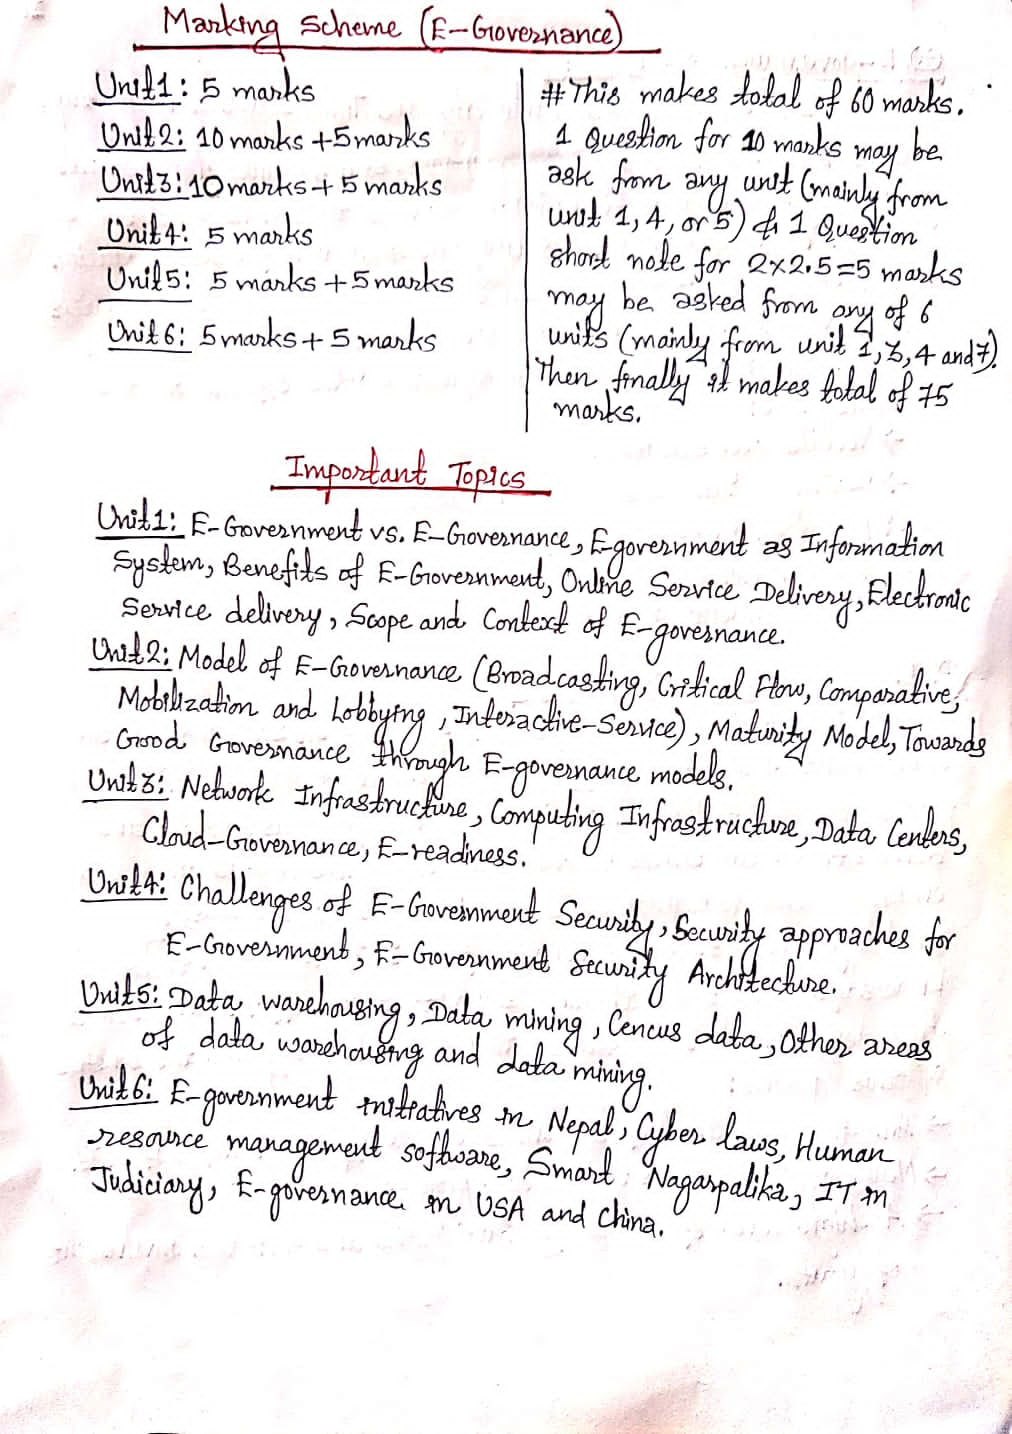 Marking Scheme (E-Governance)
Unit1: 5 marks
Unit2: 10 marks +5marks
Unit3: 10 marks + 5 marks
Unit4: 5 marks
Unit5: 5 marks +5marks
Unit 6: 5 marks + 5 marks
# This makes total of 60 marks.
1 Question for 10 marks may be
ask from any unit (mainly from
unit 1, 4, or 5) & 1 Question
short note for 2x2.5=5 marks
may be asked from any of 6
units (mainly from unit 1,3,4 and 7).
Then finally it makes total of 75
marks.
Important Topics
Unit1: E-Government vs. E-Governance, E-government as Information
System, Benefits of E-Government, Online Service Delivery, Electronic
Service delivery, Scope and Context of E-governance.
Unit2: Model of E-Governance (Broadcasting, Critical Flow, Comparative,
Mobilization and Lobbying, Interactive-Service), Maturity Model, Towards
Good Governance through E-governance models.
Unit3: Network Infrastructure, Computing Infrastructure, Data Centers,
Cloud-Governance, E-readiness.
Unit4: Challenges of E-Government Security, Security approaches for
E-Government, E-Government Security Architecture.
Unit5: Data warehousing, Data mining, Cencus data, Other areas
of data warehousing and data mining.
Unit6: E-government initiatives in Nepal, Cyber laws, Human
resource management software, Smart Nagarpalika, IT in
Judiciary, E-governance in USA and China.